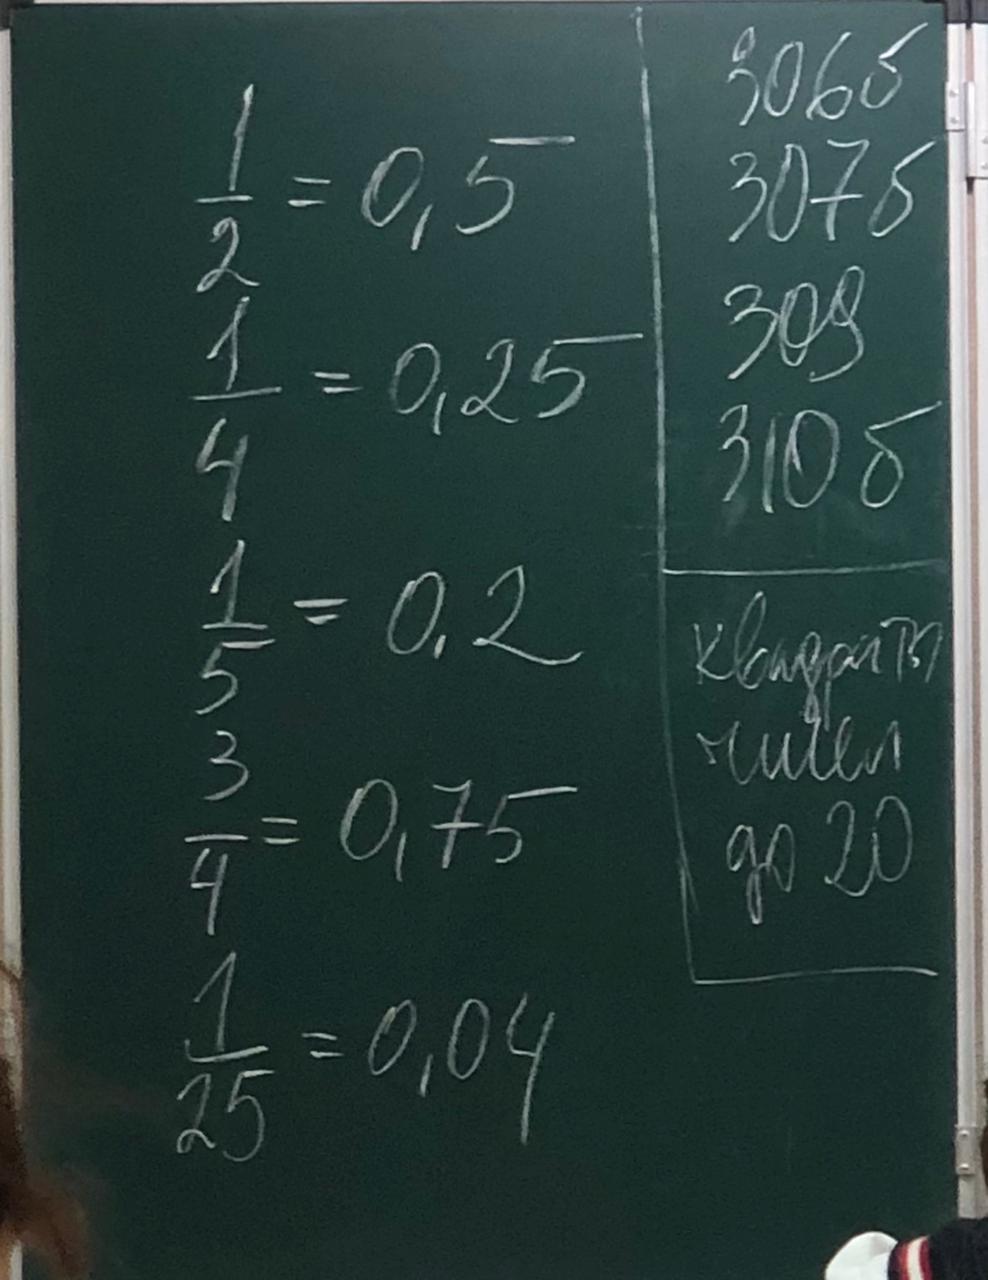 1/2 = 0,5
1/4 = 0,25
1/5 = 0,2
3/4 = 0,75
1/25 = 0,04
306б
307б
309
310б
квадраты
чисел
до 20